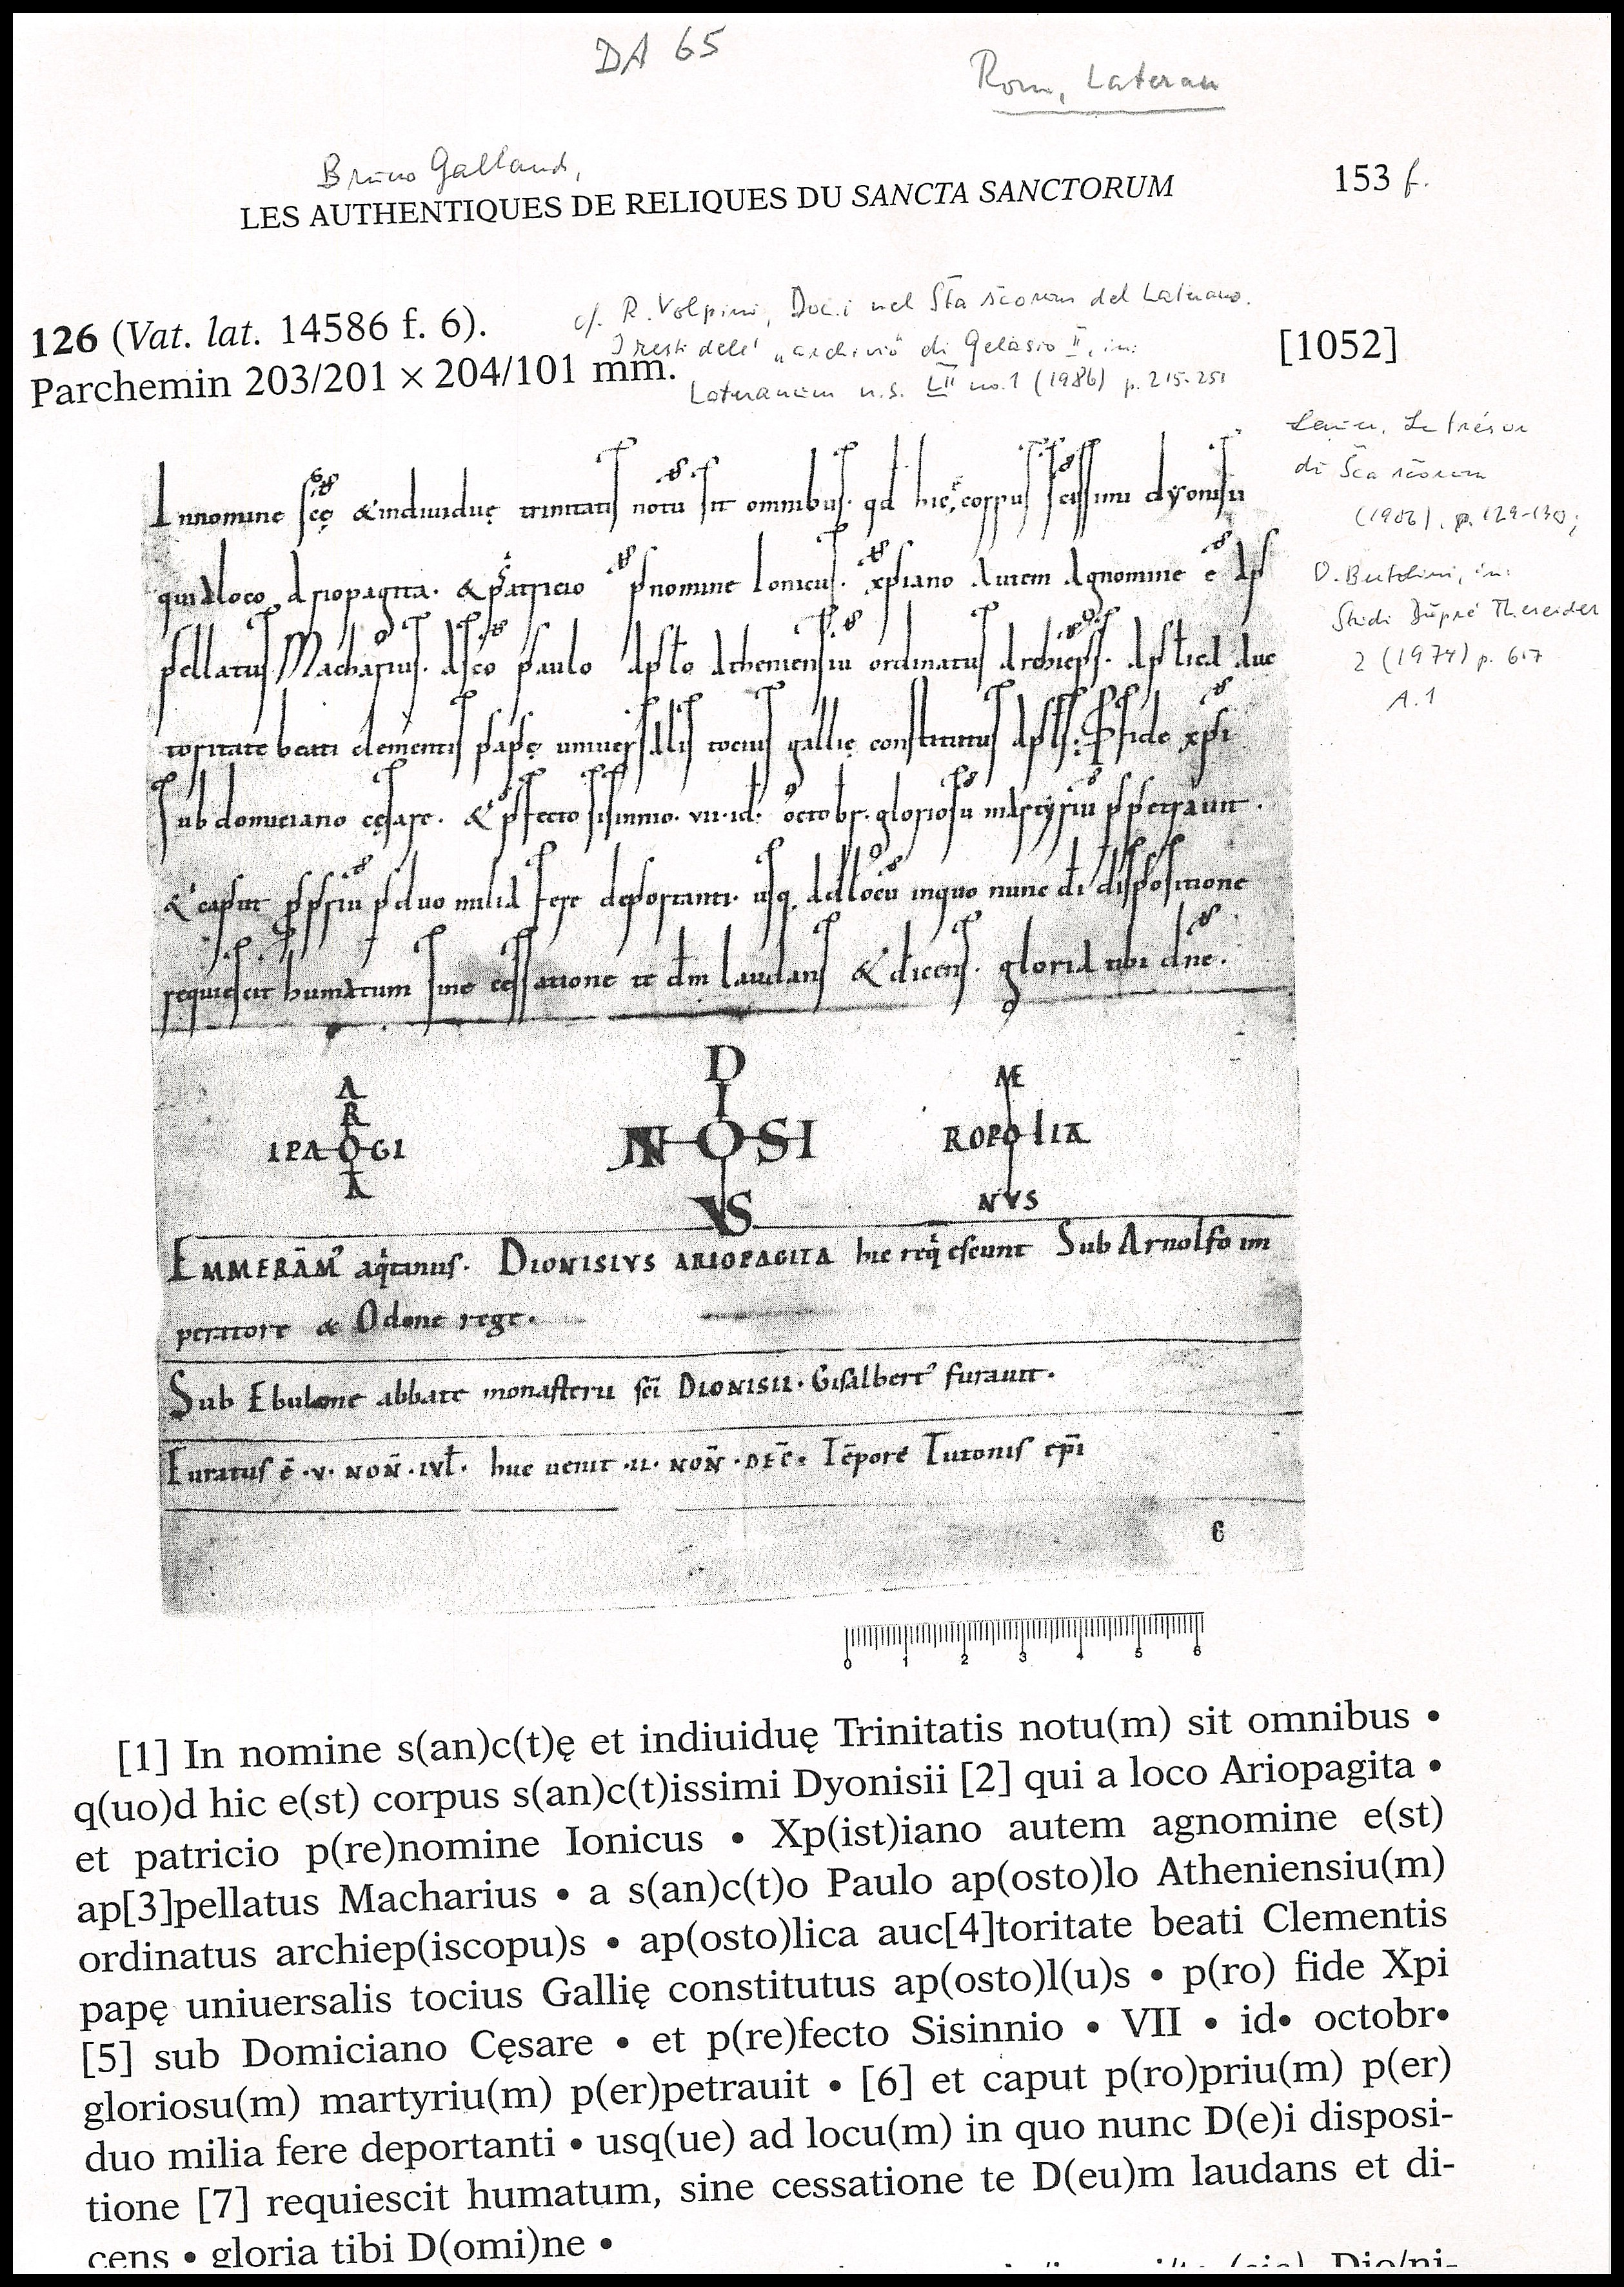 DA 65
Rom, Lateran
Bruno Galland,
LES AUTHENTIQUES DE RELIQUES DU SANCTA SANCTORUM
153 f.
126 (Vat. lat. 14586 f. 6).
cf. R. Volpini, Doc.i nel Sta scorum del Laterano.
I resti dell' „archivio" di Gelasio II, in:
[1052]
Parchemin 203/201 × 204/101 mm.
Lateranum n.s. LII no.1 (1986) p. 215-251
Lauer, Le trésor
di Sca scorum
(1906), p. 129-130;
O. Bertolini, in:
Studi Dupré Theseider
2 (1974) p. 617
A.1
Innomine scę &indiuiduę trinitatis notu sit omnibus. qd hic ÷ corpus scissimi dyonisii
qui aloco ariopagita. & patricio pnomine Ionicus. xpiano autem agnomine ē ap
pellatus Macharius. asco paulo apsto atheniensiu ordinatus archieps. apstlica auc
toritate beati clementis papę uniuersalis tocius gallię constitutus apsts. P fide xpi
sub domiciano cęsare. & pfecto sisinnio. vii. id. octobr. gloriosu martyriu ppetrauit.
& caput ppriu p duo milia fere deportanti. usq. adlocu inquo nunc di dispositione
requiescit humatum sine cessatione te dm laudans & dicens. gloria tibi dne.
A
R
IPA O GI
T
A
D
I
N O SI
VS
ME
ROPO LIA
NVS
EMMERAM' aqtanus. DIONISIVS ARIOPAGITA hic reqescunt Sub Arnolfo im
peratore & Odone rege.
Sub Ebulone abbate monasterii sci DIONISII. Gisalbert' furauit.
Furatus ē .v. NON. IVL. huc uenit .II. NON. DEC. Tēpore Tutonis epi
6
0 1 2 3 4 5 6
[1] In nomine s(an)c(t)ę et indiuiduę Trinitatis notu(m) sit omnibus •
q(uo)d hic e(st) corpus s(an)c(t)issimi Dyonisii [2] qui a loco Ariopagita •
et patricio p(re)nomine Ionicus • Xp(ist)iano autem agnomine e(st)
ap[3]pellatus Macharius • a s(an)c(t)o Paulo ap(osto)lo Atheniensiu(m)
ordinatus archiep(iscopu)s • ap(osto)lica auc[4]toritate beati Clementis
papę uniuersalis tocius Gallię constitutus ap(osto)l(u)s • p(ro) fide Xpi
[5] sub Domiciano Cęsare • et p(re)fecto Sisinnio • VII • id• octobr•
gloriosu(m) martyriu(m) p(er)petrauit • [6] et caput p(ro)priu(m) p(er)
duo milia fere deportanti • usq(ue) ad locu(m) in quo nunc D(e)i disposi-
tione [7] requiescit humatum, sine cessatione te D(eu)m laudans et di-
cens • gloria tibi D(omi)ne •
(sic) Dio/ni-